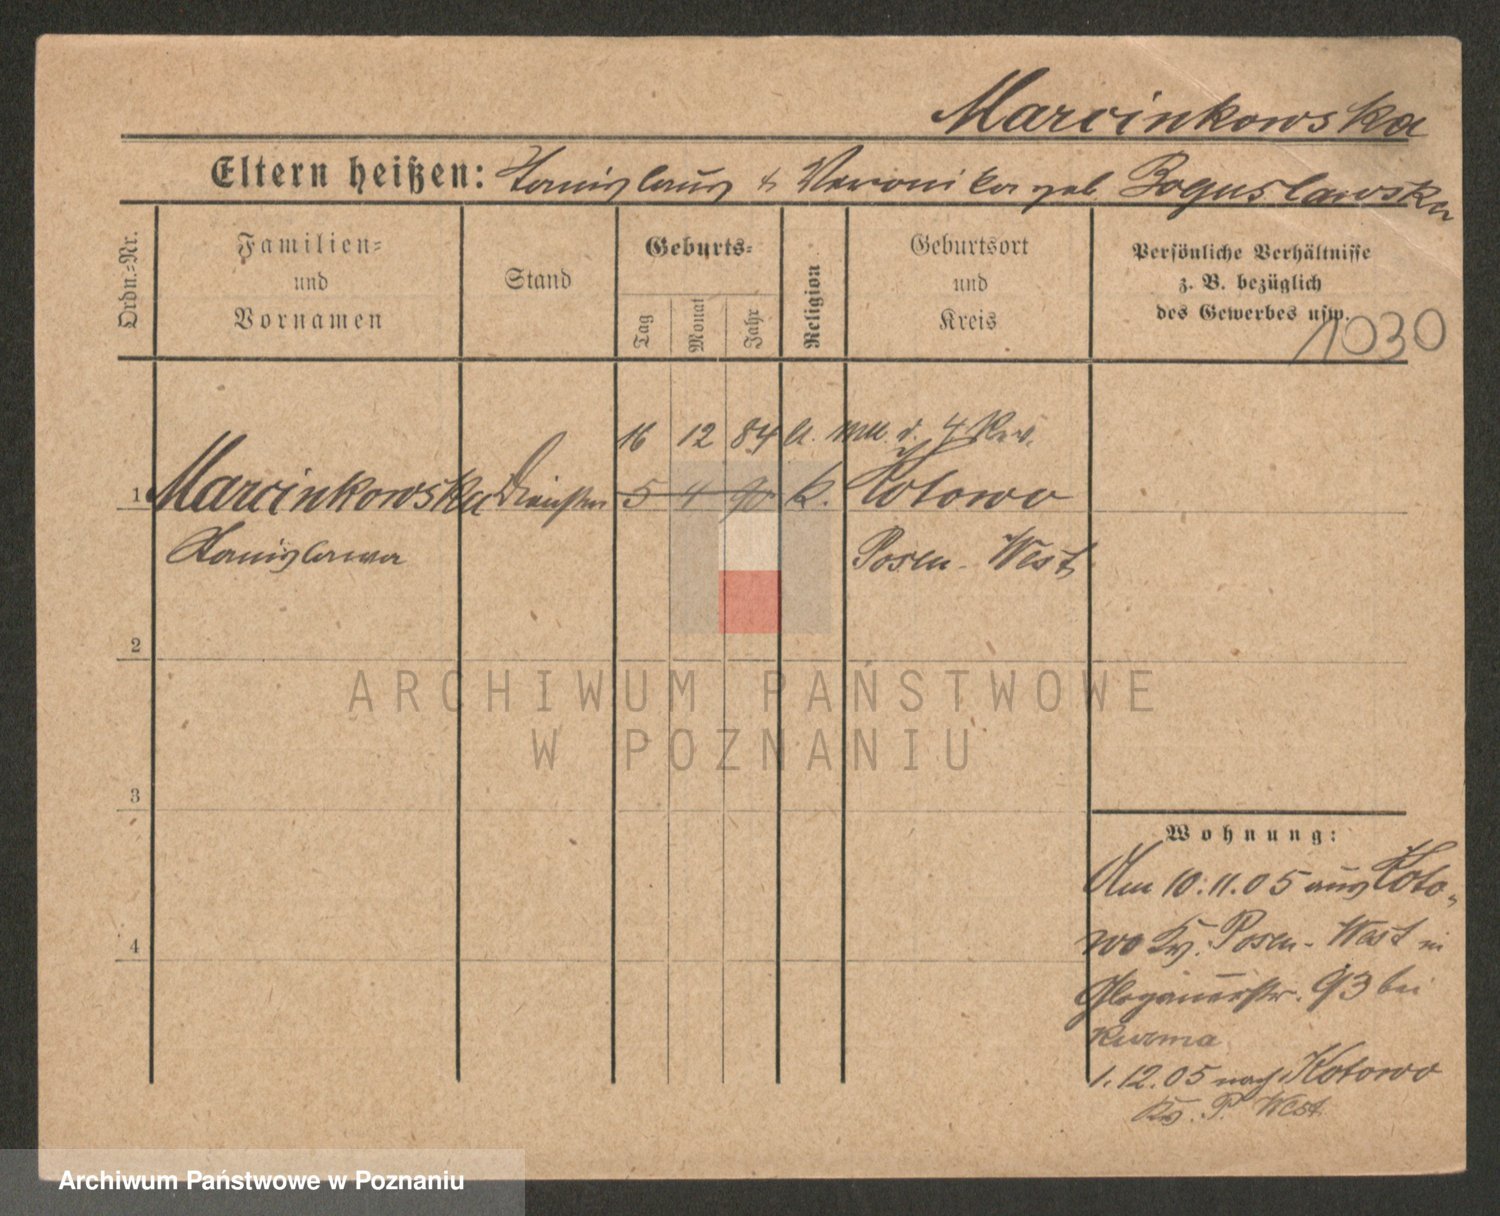 Marcinkowska
Eltern heißen: Stanislaus & Veronika geb. Boguslawska
Ordn.-Nr.
Familien- und Vornamen
Stand
Geburts-
Tag
Monat
Jahr
Religion
Geburtsort und Kreis
Persönliche Verhältnisse
z. B. bezüglich
des Gewerbes usw.
1030
16 12 84 lt.
1 Marcinkowska 5 4 90 k. Kotowo
Stanislawa Posen-West
2
3
4
Wohnung:
Am 10.11.05 aus Koto-
wo Kr. Posen-West in
Glogauerstr. 93 bei
1.12.05 nach Kotowo
Kr. P. West
ARCHIWUM PAŃSTWOWE
W POZNANIU
Archiwum Państwowe w Poznaniu